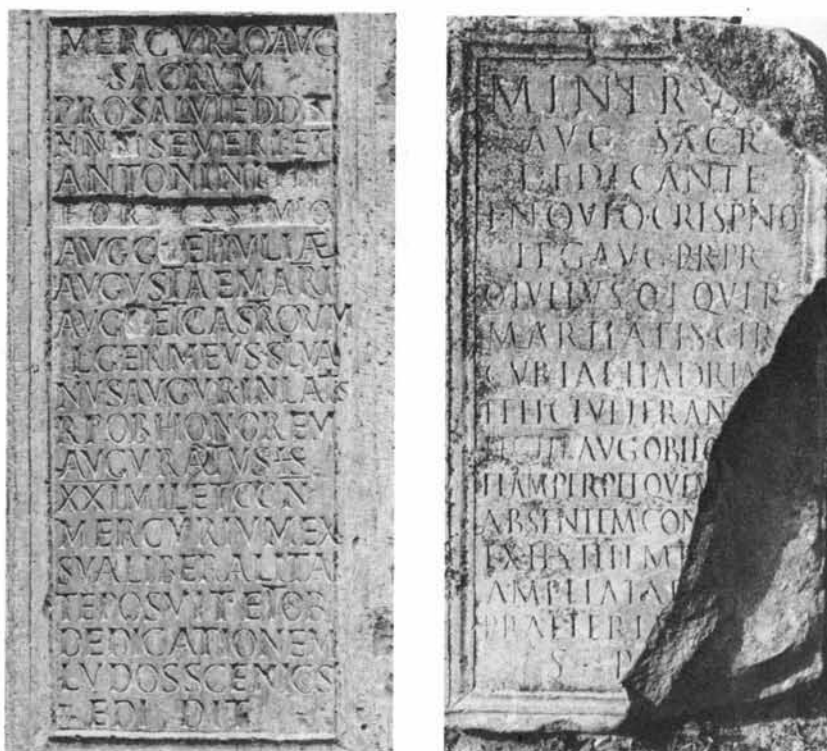 MERCVRIO AVG
SACRVM
PRO SALVTE DD
NN SEVERI ET
ANTONINI
FORTISSIMO
AVGG ET IVLIAE
AVGVSTAE MATRI
AVG ET CASTROVM
GERMEVS SILVA
NVS AVGVR INLATS
R P OB HONOREM
AVGVRATVS HS
XXI MIL ET CC N
MERCVRIVM EX
SVA LIBERALITA
TE POSVIT ET OB
DEDICATIONEM
LVDOS SCENICOS
EDI DIT
MINERV
AVG SACR
DEDICANTE
CRISPINO
LEG AVG PR PR
Q IVLIVS Q F QVIR
MARTIALIS CIR
HADRIA
AVG OB HO
FLAM PERP
ABSENTEM CON
EX HS
AMPLIATA
S P